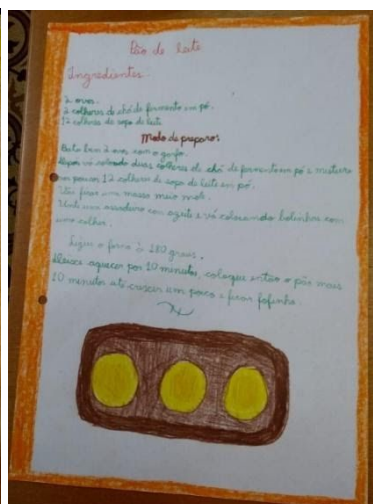 Pão de leite
Ingredientes.
2 ovos.
2 colheres de chá de fermento em pó.
12 colheres de sopa de leite
Modo de preparo:
Bata bem 2 ovos com o garfo.
Depois vá colocando duas colheres de chá de fermento em pó e misture
aos poucos 12 colheres de sopa de leite em pó.
Vai ficar uma massa meio mole.
Unte uma assadeira com azeite e vá colocando bolinhas com
uma colher.
Ligue o forno à 180 graus.
Deixe aquecer por 10 minutos, coloque então o pão mais
10 minutos até crescer um pouco e ficar fofinho.